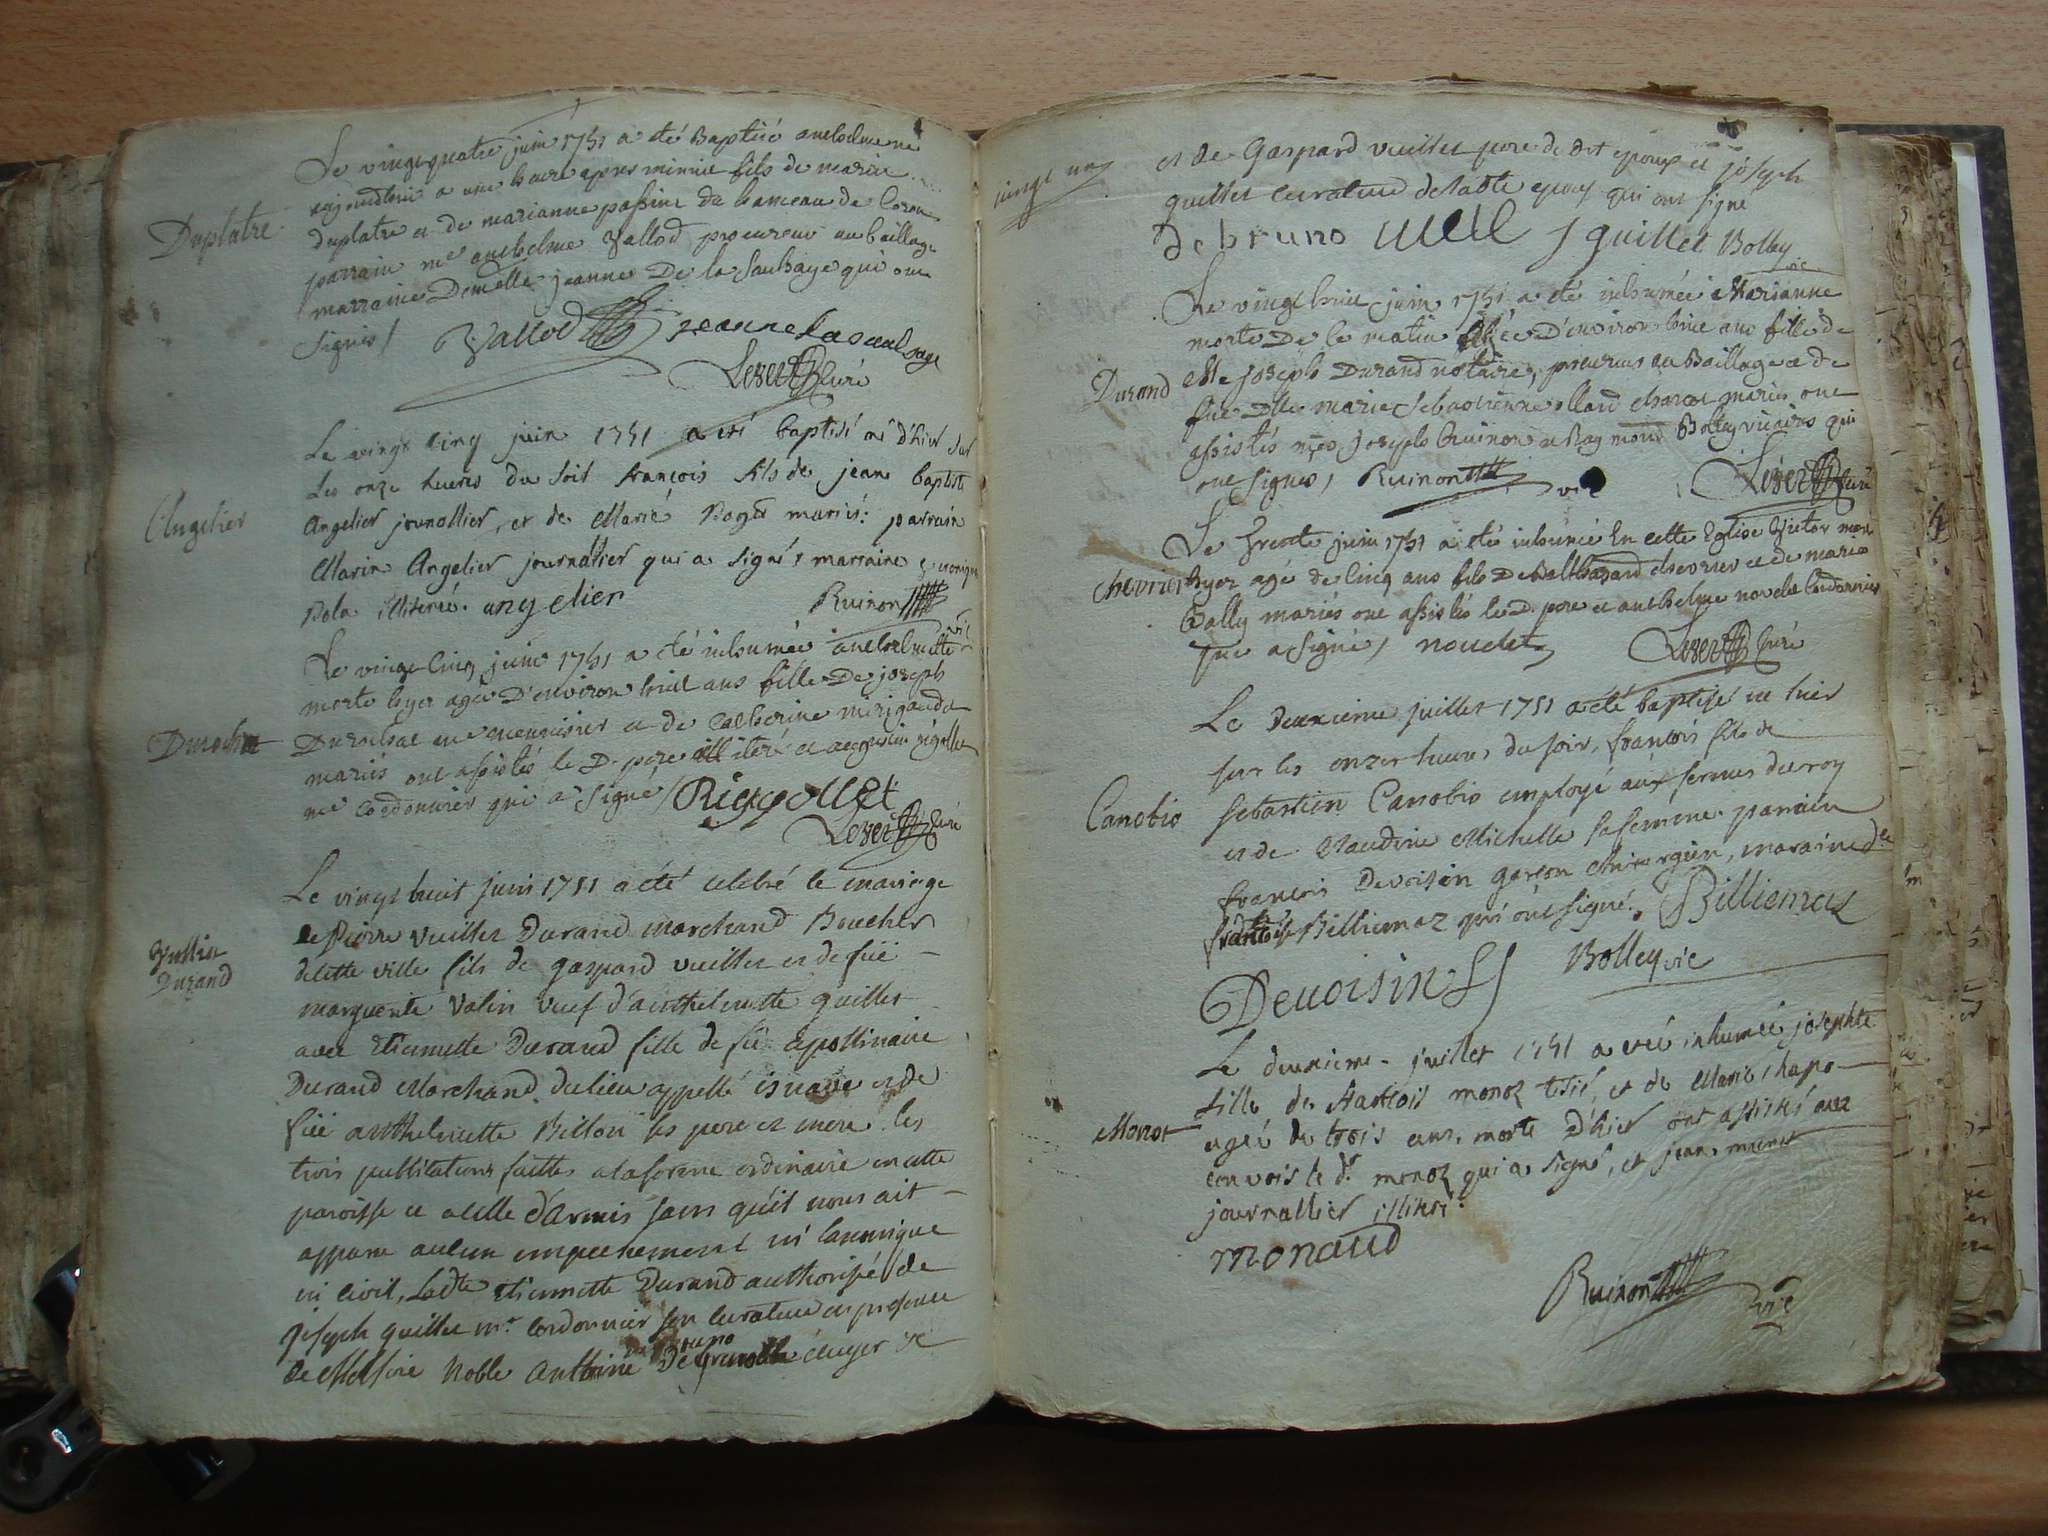 Le vingt quatre juin 1751 a été Baptisé anthelme né
aujourdhui a une heure apres minuit fils de marin
Duplatre
duplatre et de marianne passine du hameau de
parrain me anthelme Vallod procureur au baillage
marraine Demelle jeanne De la Saulsaye qui ont
signés / Vallod jeanne la saulsaye
Leser Curé
Le vingt cinq juin 1751 a été baptisé né d'hier sur
les onze heures du soir françois fils de jean baptiste
Angelier
Angelier journallier, et de Marie Roger mariés: parrain
Marin Angelier journallier qui a signé, marraine
Pola illiterée. angelier Ruinon vic
Le vingt cinq juin 1751 a été inhumée anthelmette
morte hyer agée D'environ huit ans fille De joseph
Durochat
Durochat me menuisier et de Catherine
mariés ont assistés le D. pere illiteré et augustin rigollet
me Cordonnier qui a signé / Riggollet
Leser Curé
Le vingt huit juin 1751 a été celebré le mariage
de Pierre vuillet Durand marchand Boucher
Vuillet
Durand
de cette ville fils de gaspard vuillet et de füe
marguerite Valin veuf d'anthelmette guillet
avec Etiennette Durand fille de fü apollinaire
Durand Marchand du lieu appellé et de
füe anthelmette Billon ses pere et mere les
trois publications faittes a la forme ordinaire en cette
paroisse et a celle d'armis sans qu'il nous ait
apparu aucun empechement ni canonique
ni civil, Ladte Etiennette Durand authorisée de
joseph guillet mre Cordonnier son curateur en presence
de Messire Noble Anthoine de bruno écuyer
et de Gaspard vuillet pere dudit epoux et joseph
guillet curateur de ladte epouse qui ont signé
de bruno guillet Bolley
vic
Le vingt huit juin 1751 a été inhumée Marianne
morte De ce matin agée D'environ huit ans fille de
Durand
Me joseph Durand notaire, procureur au Baillage et de
füe Dlle marie Sebastienne mariés ont
assistés mes joseph Ruinon et Raymond Bolley vicaires qui
ont signés / Ruinon vic Leser Curé
Le Trente juin 1751 a été inhumé En cette Eglise Victor mort
Chevrier
hyer agé de cinq ans fils De Balthazard chevrier et de marie
Bally mariés ont assistés le D. pere et anthelme Cordonnier
qui a signé / nouelet Leser Curé
Le deuxieme juillet 1751 a été baptisé né hier
sur les onze heures du soir, françois fils de
Canobio
Sebastien Canobio employé aux fermes du roy
et de Claudine Michelle sa femme. parrain
françois Devoisin garçon chirurgien, maraine dlle
Billiemaz qui ont signé. Billiemaz
Devoisin Bolley vic
Le deuxieme juillet 1751 a été inhumée josephte
fille de françois monoz et de Marie
Monot
agée de trois ans, morte d'hier ont assisté au
convois le d. monoz qui a signé, et jean
journallier illiteré
monaud
Ruinon vic